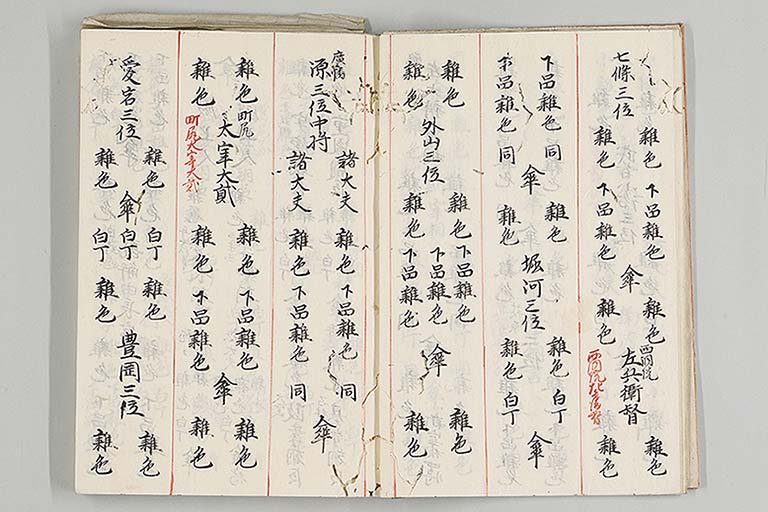 七條三位
雜色 下品雜色
雜色 下品雜色
傘
雜色
雜色
西洞院
左兵衛督
西洞院左兵衛督
雜色
雜色
下品雜色 同
下品雜色 同
傘
雜色
雜色
堀河三位
雜色 白丁
雜色 白丁
傘
雜色
雜色
外山三位
雜色 下品雜色
下品雜色
雜色 下品雜色
傘
雜色
雜色
廣幡
源三位中将
諸大夫 雜色 下品雜色 同
諸大夫 雜色 下品雜色 同
傘
雜色
雜色
町尻
太宰大貳
町尻太宰大貳
雜色 下品雜色
雜色 下品雜色
傘
雜色
雜色
愛宕三位
雜色
雜色
傘
白丁
白丁
白丁
雜色
雜色
豊岡三位
雜色
雜色